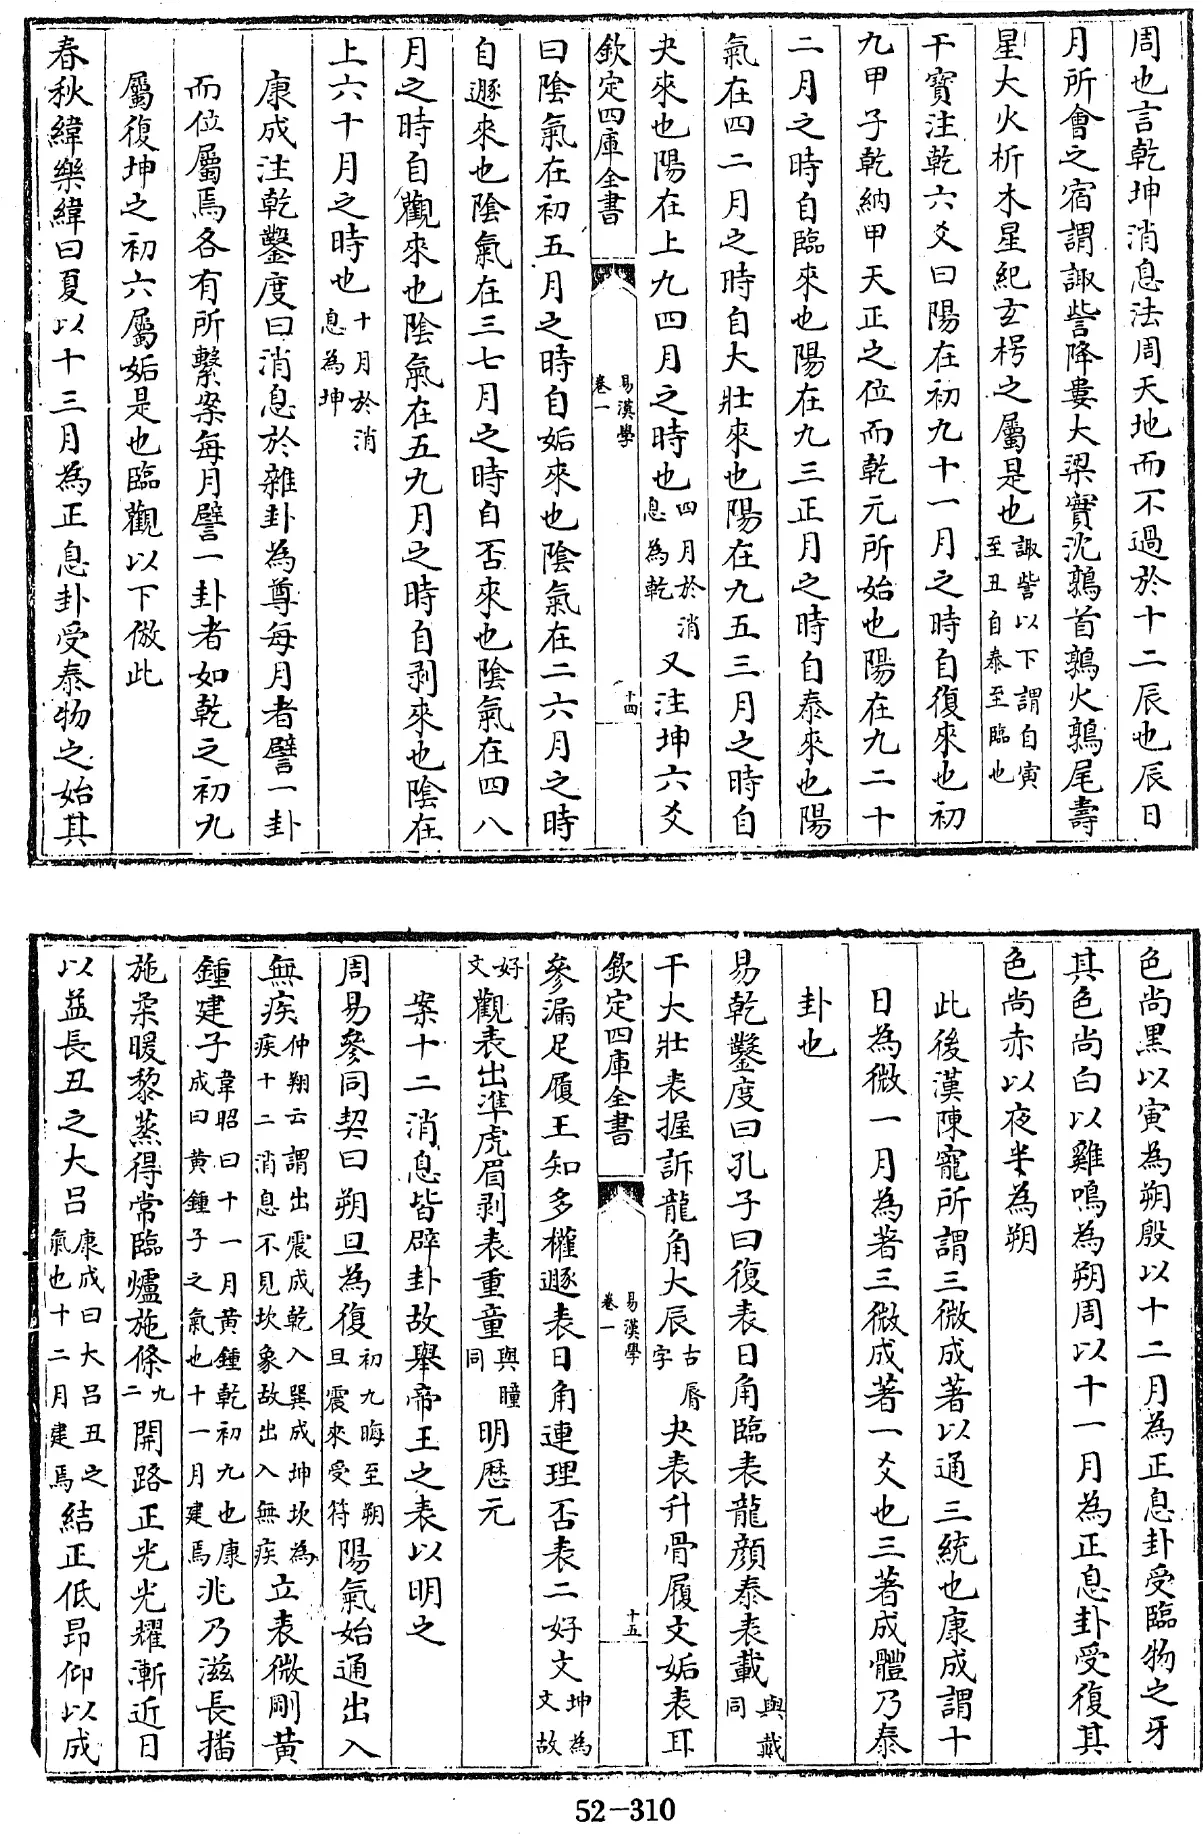 周也言乾坤消息法周天地而不過於十二辰也辰日
月所會之宿謂諏訾降婁大梁實沈鶉首鶉火鶉尾壽
星大火析木星紀玄枵之屬是也諏訾以下謂自寅至丑自泰至臨也
干寶注乾六爻曰陽在初九十一月之時自復來也初
九甲子乾納甲天正之位而乾元所始也陽在九二十
二月之時自臨來也陽在九三正月之時自泰來也陽
氣在四二月之時自大壯來也陽在九五三月之時自
夬來也陽在上九四月之時也四月於消息為乾又注坤六爻
欽定四庫全書 易漢學 卷一 十四
曰陰氣在初五月之時自姤來也陰氣在二六月之時
自遯來也陰氣在三七月之時自否來也陰氣在四八
月之時自觀來也陰氣在五九月之時自剥來也陰在
上六十月之時也十月於消息為坤
康成注乾鑿度曰消息於雜卦為尊每月者譬一卦
而位屬焉各有所繫案每月譬一卦者如乾之初九
屬復坤之初六屬姤是也臨觀以下倣此
春秋緯樂緯曰夏以十三月為正息卦受泰物之始其
色尚黑以寅為朔殷以十二月為正息卦受臨物之牙
其色尚白以雞鳴為朔周以十一月為正息卦受復其
色尚赤以夜半為朔
此後漢陳寵所謂三微成著以通三統也康成謂十
日為微一月為著三微成著一爻也三著成體乃泰
卦也
易乾鑿度曰孔子曰復表日角臨表龍顔泰表載與戴同
干大壯表握訴龍角大辰古脣字夬表升骨履文姤表耳
欽定四庫全書 易漢學 卷一 十五
參漏足履王知多權遯表日角連理否表二好文坤為文故
好文觀表出準虎眉剥表重童與瞳同明歷元
案十二消息皆辟卦故舉帝王之表以明之
周易參同契曰朔旦為復初九晦至朔旦震來受符陽氣始通出入
無疾仲翔云謂出震成乾入巽成坤坎為疾十二消息不見坎象故出入無疾立表微剛黄
鍾建子韋昭曰十一月黄鍾乾初九也康成曰黄鍾子之氣也十一月建焉兆乃滋長播
施柔暖黎蒸得常臨爐施條九二開路正光光耀漸近日
以益長丑之大吕康成曰大吕丑之氣也十二月建焉結正低昂仰以成
52-310